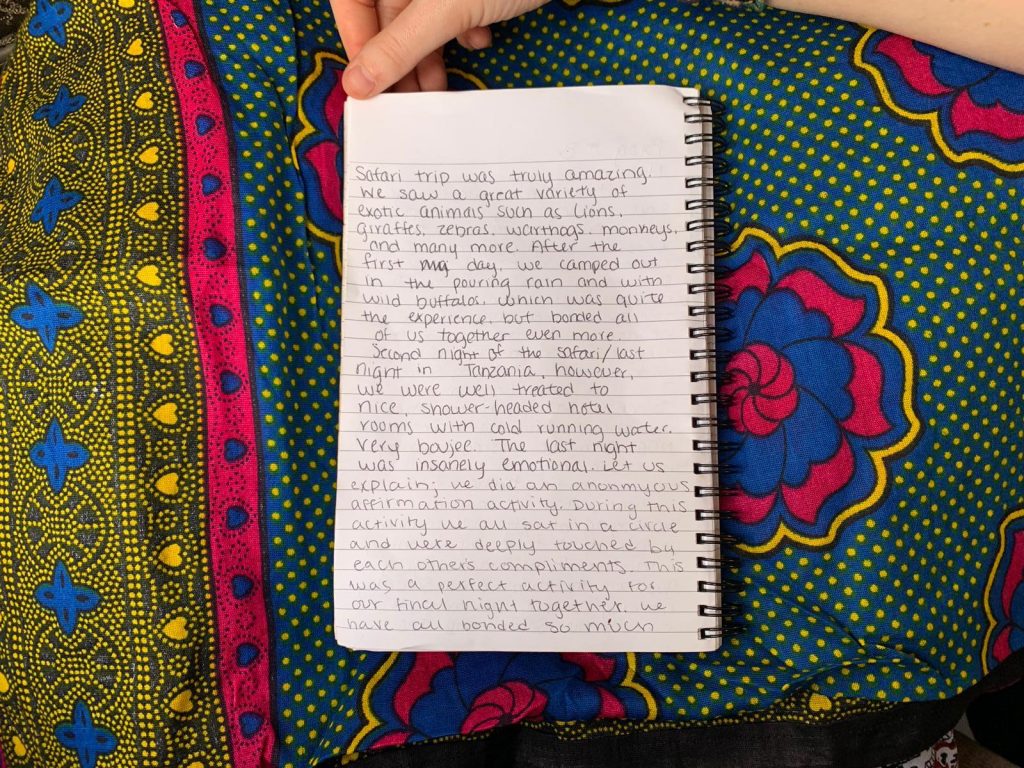 Safari trip was truly amazing.
We saw a great variety of
exotic animals such as lions,
giraffes, zebras, warthogs, monkeys,
and many more. After the
first day, we camped out
in the pouring rain and with
wild buffalos, which was quite
the experience, but bonded all
of us together even more.
Second night of the safari/last
night in Tanzania, however,
we were well treated to
nice, shower-headed hotal
rooms with cold running water.
Very boujee. The last night
was insanely emotional. Let us
explain; we did an anonmycus
affirmation activity. During this
activity we all sat in a circle
and were deeply touched by
each other's compliments. This
was a perfect activity for
our final night together. We
have all bonded so much